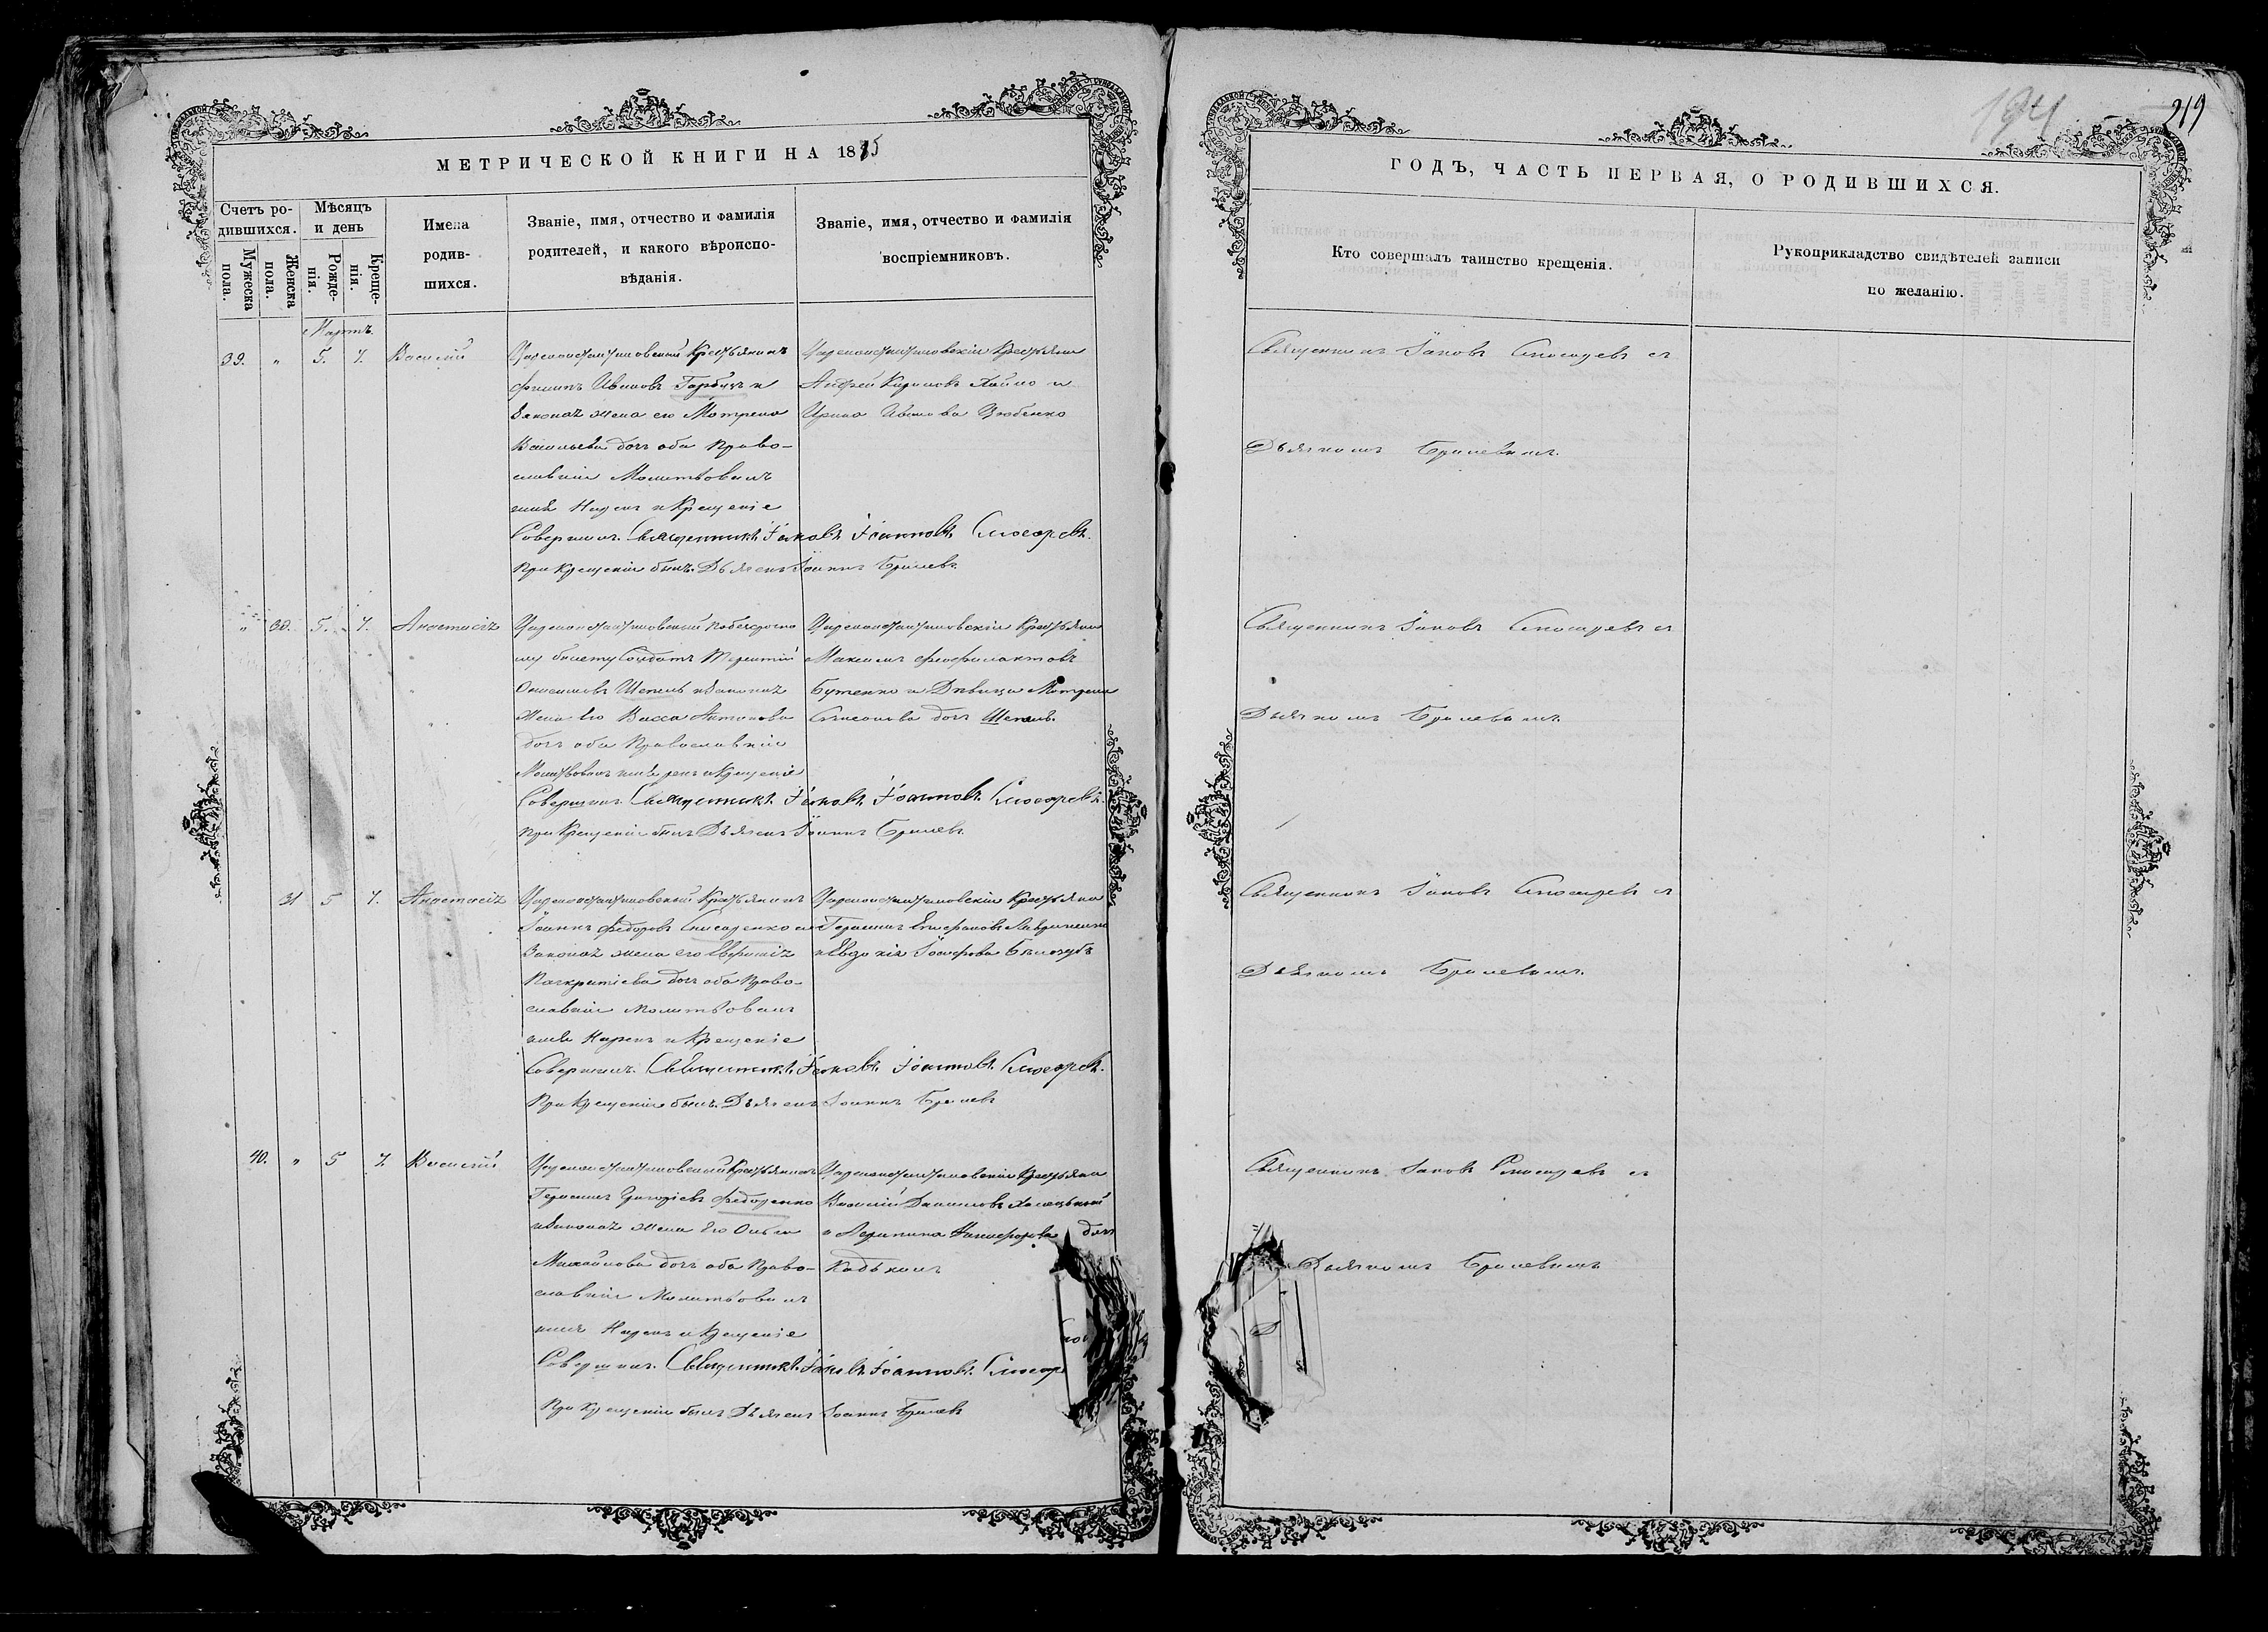 МЕТРИЧЕСКОЙ КНИГИ НА 1875
Счетъ ро-
дившихся.
Мужеска
пола.
Женска
пола.
Мѣсяцъ
и день
Рожде-
нія.
Креще-
нія.
Имена
родив-
шихся.
Званіе, имя, отчество и фамилія
родителей, и какого вѣроиспо-
вѣданія.
Званіе, имя, отчество и фамилія
воспріемниковъ.
Мартъ.
39. " 5. 7. Василій
Крестьянинъ
Филипъ Ивановъ Гарбузъ и
Законая жена его Матрена
Васильева дочь оба Право-
славніи Молитвовалъ
имя Нарек и Крещеніе
Совершилъ Священникъ Іаковъ Іоанновъ Слюсаревъ.
При Крещеніи былъ Дьячекъ Іоаннъ Брилевъ
Крестьяне
Андрей Кириловъ и
Ирина Иванова
" 30. 5. 7. Анастасія
билету Солдатъ Терентій
Онисимовъ Шепель и Законая
Жена его Васса Антонова
дочь оба Православніи
Совершилъ Священникъ Іаковъ Іоанновъ Слюсаревъ.
При Крещеніи былъ Дьячекъ Іоаннъ Брилевъ
Крестьяне
Максимъ Феофилактовъ
Бутенко и Дѣвица Матрена
Симеонова дочь Шепель.
31 5 7. Анастасія
Крестьянинъ
Іоаннъ Федоровъ Слисаренко и
Законая жена его Евфросинія
Панкратіева дочь оба Право-
славніи Молитвовалъ
имя Нарек и Крещеніе
Совершилъ Священникъ Іаковъ Іоанновъ Слюсаревъ.
При Крещеніи былъ Дьячекъ Іоаннъ Брилевъ
Крестьяне
Герасимъ Епифановъ
и Евдокія Іосифова Бѣлозубъ
40. " 5 7. Василій
Крестьянинъ
Герасимъ Григоріевъ Федоренко
и Законая жена Его Ольга
Михайлова дочь оба Право-
славніи Молитвовалъ
имя Нарек и Крещеніе
Совершилъ Священникъ Іаковъ Іоанновъ Слюсар
При Крещеніи былъ Дьячекъ Іоаннъ Брилевъ
Крестьяне
Василій Даниловъ
и Никифорова дочь
194
219
ГОДЪ, ЧАСТЬ ПЕРВАЯ, О РОДИВШИХСЯ.
Кто совершалъ таинство крещенія.
Рукоприкладство свидѣтелей записи
по желанію.
Священникъ Іаковъ Слюсаревъ съ
Дьячкомъ Брилевымъ.
Священникъ Іаковъ Слюсаревъ съ
Дьячкомъ Брилевымъ.
Священникъ Іаковъ Слюсаревъ съ
Дьячкомъ Брилевымъ.
Священникъ Іаковъ Слюсаревъ съ
Дьячкомъ Брилевымъ